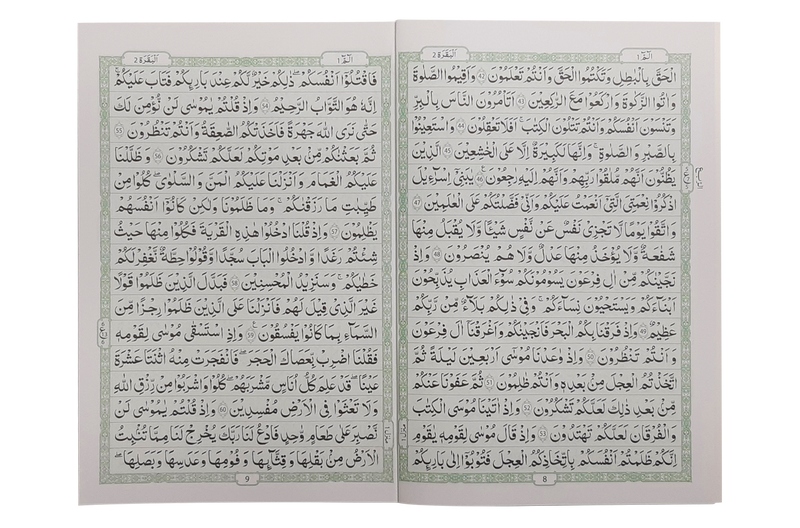 الٓمّٓ 1
اَلْبَقَرَة 2
الْحَقَّ بِالْبَاطِلِ وَتَكْتُمُوا الْحَقَّ وَاَنْتُمْ تَعْلَمُوْنَ 42 وَاَقِيْمُوا الصَّلٰوةَ
وَاٰتُوا الزَّكٰوةَ وَارْكَعُوْا مَعَ الرّٰكِعِيْنَ 43 اَتَاْمُرُوْنَ النَّاسَ بِالْبِرِّ
وَتَنْسَوْنَ اَنْفُسَكُمْ وَاَنْتُمْ تَتْلُوْنَ الْكِتٰبَ ؕ اَفَلَا تَعْقِلُوْنَ 44 وَاسْتَعِيْنُوْا
بِالصَّبْرِ وَالصَّلٰوةِ ؕ وَاِنَّهَا لَكَبِيْرَةٌ اِلَّا عَلَى الْخٰشِعِيْنَ 45 الَّذِيْنَ
يَظُنُّوْنَ اَنَّهُمْ مُّلٰقُوْا رَبِّهِمْ وَاَنَّهُمْ اِلَيْهِ رٰجِعُوْنَ 46 يٰبَنِيْٓ اِسْرَآءِيْلَ
اذْكُرُوْا نِعْمَتِيَ الَّتِيْٓ اَنْعَمْتُ عَلَيْكُمْ وَاَنِّيْ فَضَّلْتُكُمْ عَلَى الْعٰلَمِيْنَ 47
وَاتَّقُوْا يَوْمًا لَّا تَجْزِيْ نَفْسٌ عَنْ نَّفْسٍ شَيْئًا وَّلَا يُقْبَلُ مِنْهَا
شَفَاعَةٌ وَّلَا يُؤْخَذُ مِنْهَا عَدْلٌ وَّلَا هُمْ يُنْصَرُوْنَ 48 وَاِذْ
نَجَّيْنٰكُمْ مِّنْ اٰلِ فِرْعَوْنَ يَسُوْمُوْنَكُمْ سُوْٓءَ الْعَذَابِ يُذَبِّحُوْنَ
اَبْنَآءَكُمْ وَيَسْتَحْيُوْنَ نِسَآءَكُمْ ؕ وَفِيْ ذٰلِكُمْ بَلَآءٌ مِّنْ رَّبِّكُمْ
عَظِيْمٌ 49 وَاِذْ فَرَقْنَا بِكُمُ الْبَحْرَ فَاَنْجَيْنٰكُمْ وَاَغْرَقْنَآ اٰلَ فِرْعَوْنَ
وَاَنْتُمْ تَنْظُرُوْنَ 50 وَاِذْ وٰعَدْنَا مُوْسٰٓى اَرْبَعِيْنَ لَيْلَةً ثُمَّ
اتَّخَذْتُمُ الْعِجْلَ مِنْۢ بَعْدِهٖ وَاَنْتُمْ ظٰلِمُوْنَ 51 ثُمَّ عَفَوْنَا عَنْكُمْ
مِّنْۢ بَعْدِ ذٰلِكَ لَعَلَّكُمْ تَشْكُرُوْنَ 52 وَاِذْ اٰتَيْنَا مُوْسَى الْكِتٰبَ
وَالْفُرْقَانَ لَعَلَّكُمْ تَهْتَدُوْنَ 53 وَاِذْ قَالَ مُوْسٰى لِقَوْمِهٖ يٰقَوْمِ
اِنَّكُمْ ظَلَمْتُمْ اَنْفُسَكُمْ بِاتِّخَاذِكُمُ الْعِجْلَ فَتُوْبُوْٓا اِلٰى بَارِئِكُمْ
8
الٓمّٓ 1
اَلْبَقَرَة 2
فَاقْتُلُوْٓا اَنْفُسَكُمْ ؕ ذٰلِكُمْ خَيْرٌ لَّكُمْ عِنْدَ بَارِئِكُمْ ؕ فَتَابَ عَلَيْكُمْ ؕ
اِنَّهٗ هُوَ التَّوَّابُ الرَّحِيْمُ 54 وَاِذْ قُلْتُمْ يٰمُوْسٰى لَنْ نُّؤْمِنَ لَكَ
حَتّٰى نَرَى اللّٰهَ جَهْرَةً فَاَخَذَتْكُمُ الصّٰعِقَةُ وَاَنْتُمْ تَنْظُرُوْنَ 55
ثُمَّ بَعَثْنٰكُمْ مِّنْۢ بَعْدِ مَوْتِكُمْ لَعَلَّكُمْ تَشْكُرُوْنَ 56 وَظَلَّلْنَا
عَلَيْكُمُ الْغَمَامَ وَاَنْزَلْنَا عَلَيْكُمُ الْمَنَّ وَالسَّلْوٰى ؕ كُلُوْا مِنْ
طَيِّبٰتِ مَا رَزَقْنٰكُمْ ؕ وَمَا ظَلَمُوْنَا وَلٰكِنْ كَانُوْٓا اَنْفُسَهُمْ
يَظْلِمُوْنَ 57 وَاِذْ قُلْنَا ادْخُلُوْا هٰذِهِ الْقَرْيَةَ فَكُلُوْا مِنْهَا حَيْثُ
شِئْتُمْ رَغَدًا وَّادْخُلُوا الْبَابَ سُجَّدًا وَّقُوْلُوْا حِطَّةٌ نَّغْفِرْ لَكُمْ
خَطٰيٰكُمْ ؕ وَسَنَزِيْدُ الْمُحْسِنِيْنَ 58 فَبَدَّلَ الَّذِيْنَ ظَلَمُوْا قَوْلًا
غَيْرَ الَّذِيْ قِيْلَ لَهُمْ فَاَنْزَلْنَا عَلَى الَّذِيْنَ ظَلَمُوْا رِجْزًا مِّنَ
السَّمَآءِ بِمَا كَانُوْا يَفْسُقُوْنَ 59 وَاِذِ اسْتَسْقٰى مُوْسٰى لِقَوْمِهٖ
فَقُلْنَا اضْرِبْ بِّعَصَاكَ الْحَجَرَ ؕ فَانْفَجَرَتْ مِنْهُ اثْنَتَا عَشْرَةَ
عَيْنًا ؕ قَدْ عَلِمَ كُلُّ اُنَاسٍ مَّشْرَبَهُمْ ؕ كُلُوْا وَاشْرَبُوْا مِنْ رِّزْقِ اللّٰهِ
وَلَا تَعْثَوْا فِي الْاَرْضِ مُفْسِدِيْنَ 60 وَاِذْ قُلْتُمْ يٰمُوْسٰى لَنْ
نَّصْبِرَ عَلٰى طَعَامٍ وَّاحِدٍ فَادْعُ لَنَا رَبَّكَ يُخْرِجْ لَنَا مِمَّا تُنْۢبِتُ
الْاَرْضُ مِنْۢ بَقْلِهَا وَقِثَّآئِهَا وَفُوْمِهَا وَعَدَسِهَا وَبَصَلِهَا ؕ
9